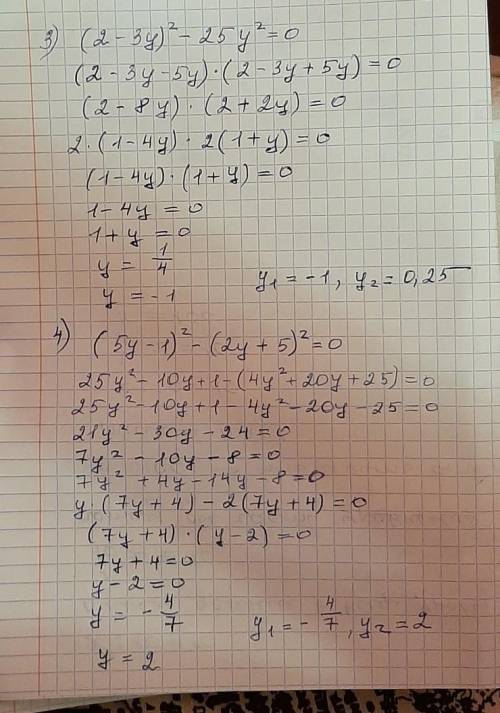 3) (2-3y)²-25y²=0
(2-3y-5y)·(2-3y+5y)=0
(2-8y)·(2+2y)=0
2·(1-4y)·2(1+y)=0
(1-4y)·(1+y)=0
1-4y=0
1+y=0
y=1/4
y=-1 y₁=-1, y₂=0,25
4) (5y-1)²-(2y+5)²=0
25y²-10y+1-(4y²+20y+25)=0
25y²-10y+1-4y²-20y-25=0
21y²-30y-24=0
7y²-10y-8=0
7y²+4y-14y-8=0
y·(7y+4)-2(7y+4)=0
(7y+4)·(y-2)=0
7y+4=0
y-2=0
y=-4/7 y₁=-4/7, y₂=2
y=2